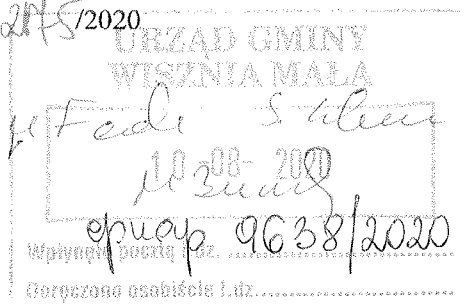 2175/2020
URZĄD GMINY
WISZNIA MAŁA
10 -08- 2020
epuap 9638/2020
Wpłynęło pocztą l.dz. ....................
Doręczono osobiście l.dz. ....................